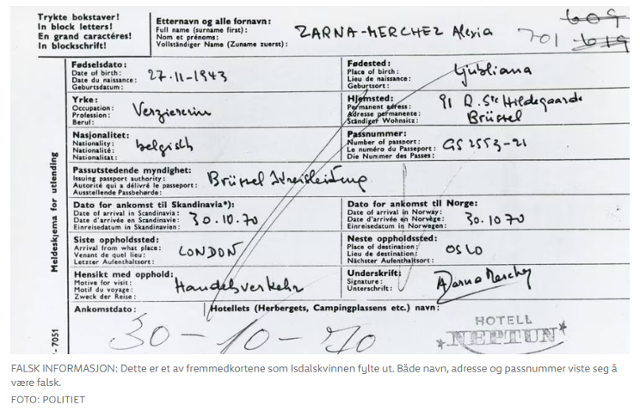 Trykte bokstaver!
In block letters!
En grand caractéres!
In blockschrift!
Etternavn og alle fornavn:
Full name (surname first):
Nom et prénoms:
Vollständiger Name (Zuname zuerst):
ZARNA-MERCHEZ Alexia
701
609
619
Fødselsdato:
Date of birth:
Date du naissance:
Geburtsdatum:
27.11-1943
Fødested:
Place of birth:
Lieu de naissance:
Geburtsort:
Ljubliana
Yrke:
Occupation:
Profession:
Beruf:
Verziererin
Hjemsted:
Permanent adress:
Adresse permanente:
Ständiger Wohnsitz:
91 R. Ste Hildegaarde
Brüssel
Nasjonalitet:
Nationality:
Nationalité:
Nationalitat:
belgisch
Passnummer:
Number of passport:
Le numéro du Passeport:
Die Nummer des Passes:
GS 2553-21
Passutstedende myndighet:
Issuing passport authority:
Autorité qui a délivré le passeport:
Ausstellende Passbehørde:
Brüssel Kreisleitung
Dato for ankomst til Skandinavia*):
Date of arrival in Scandinavia:
Date d'arrivée en Scandinavie:
Einreisedatum in Skandinavien:
30.10.70
Dato for ankomst til Norge:
Date of arrival in Norway:
Date d'arrivée en Norvège:
Einreisedatum in Norwegen:
30.10 70
Siste oppholdssted:
Arrival from what place:
Venant de quel lieu:
Letzter Aufenthaltsort:
LONDON
Neste oppholdssted:
Place of destination:
Lieu de destination:
Nächster Aufenthaltsort:
OSLO
Hensikt med opphold:
Motive for visit:
Motif du voyage:
Zweck der Reise:
Handelsverkehr
Underskrift:
Signature:
Unterschrift:
AZarna Merchez
Ankomstdato:
Hotellets (Herbergets, Campingplassens etc.) navn:
30-10-70
HOTELL
NEPTUN
Meldeskjema for utlending
- 7051
FALSK INFORMASJON: Dette er et av fremmedkortene som Isdalskvinnen fylte ut. Både navn, adresse og passnummer viste seg å
være falsk.
FOTO: POLITIET